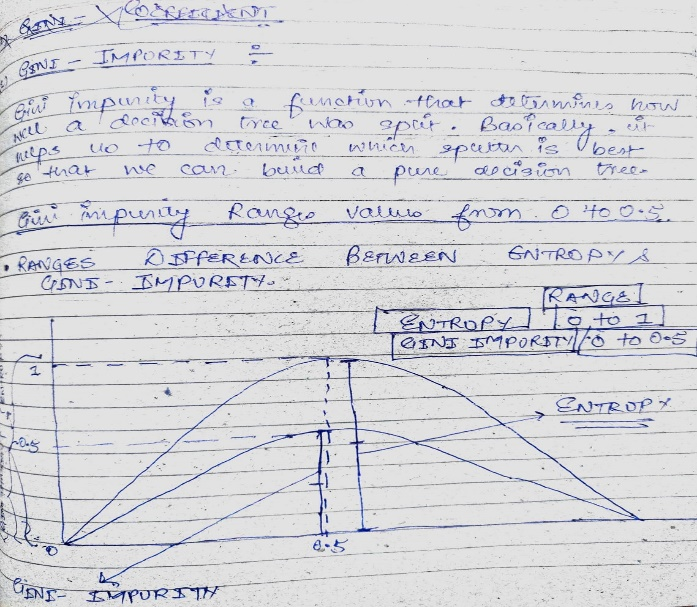 GINI - COEFFICIENT
GINI - IMPURITY ÷
Gini impurity is a function that determines how
well a decision tree was split. Basically, it
helps us to determine which splitter is best
so that we can build a pure decision tree.
Gini impurity Ranges values from 0 to 0.5.
• RANGES DIFFERENCE BETWEEN ENTROPY &
GINI - IMPURITY.
RANGE
ENTROPY 0 to 1
GINI IMPURITY 0 to 0.5
1
ENTROPY
0.5
0
0.5
GINI - IMPURITY